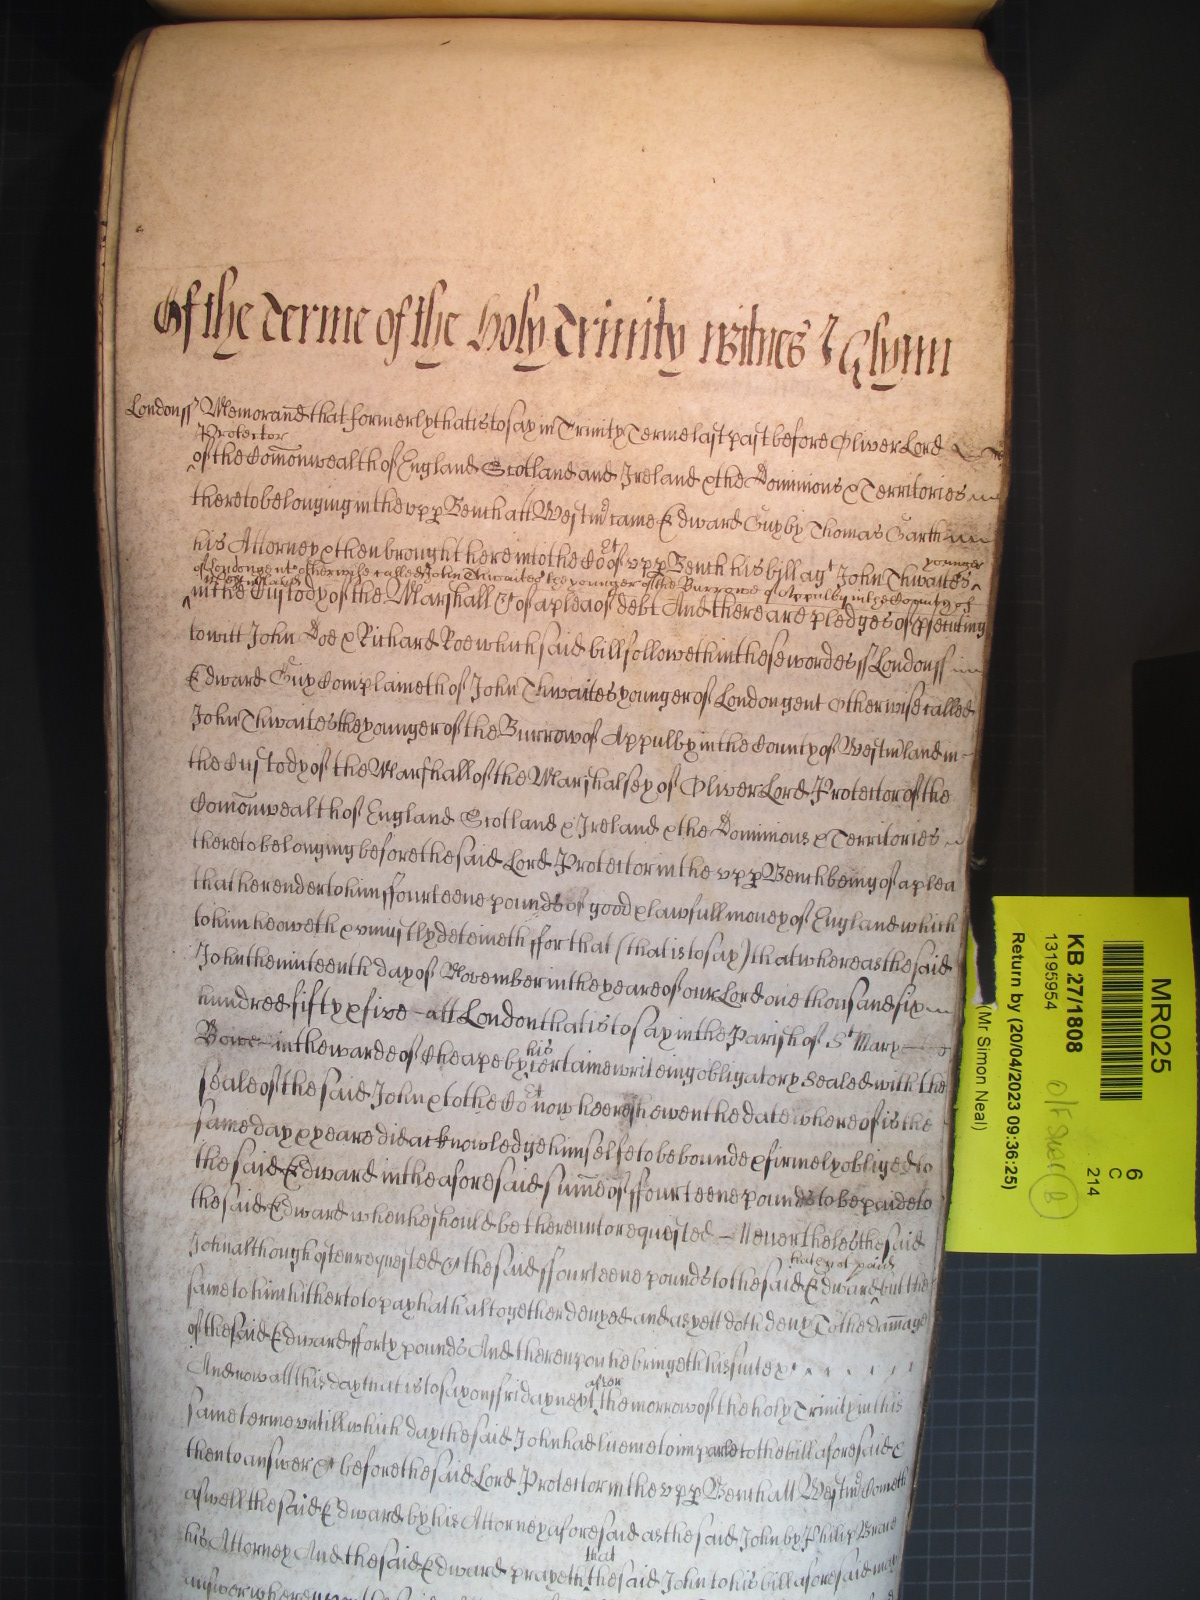 Of the Terme of the Holy Trinity Witnes J Glynn
Londonss Memorand that formerly that is to say in Trinity Terme last past before Oliver Lord
Protector
of the Comonwealth of England Scotland and Ireland & the Dominions & Territories
thereto belonging in the upp Bench att Westmr came Edward Guy by Thomas Garth
his Attorney & then brought here into the Cort of upp Bench his bill agt John Thwaites
younger
of London gent otherwise called John Thwaites the younger of the Burrowe of Appulby in the County of
Westmland
in the Custody of the Marshall &c of a plea of debt And there are pledges of psecuting
to witt John Doe & Richard Roe which said bill followeth in these wordes ss Londonss
Edward Guy Complaineth of John Thwaites younger of London gent otherwise called
John Thwaites the younger of the Burrow of Appulby in the County of Westmland in
the Custody of the Marshall of the Marshalsey of Oliver Lord Protector of the
Comonwealth of England Scotland & Ireland & the Dominions & Territories
thereto belonging before the said Lord Protector in the upp Bench being of a plea
that he render to him ffourteene pounds of good & lawfull money of England which
to him he oweth & uniustly deteineth ffor that (that is to say) that whereas the said
John the ninteenth day of November in the yeare of our Lord one thousand six
hundred fifty & five att London that is to say in the Parish of St Mary
Bowe in the warde of Cheape by his certaine writeing obligatory Sealed with the
seale of the said John & to the Cort now heere shewen the date whereof is the
same day & yeare did acknowledge himselfe to be bounde & firmely obliged to
the said Edward in the aforesaid summe of ffourteene pounds to be paide to
the said Edward when he should be thereunto requested Neverthelesse the said
John although often requested &c the said ffourteene pounds to the said Edward hath not paid but the
same to him hitherto to pay hath altogether denyed and as yett doth deny To the damage
of the said Edward fforty pounds And thereupon he bringeth his suite &c
And now att this day that is to say on ffriday next after the morrow of the holy Trinity in this
same terme untill which day the said John had lucence to imparle to the bill aforesaid &
then to answer &c before the said Lord Protector in the upp Bench att Westmr Cometh
aswell the said Edward by his Attorney aforesaid as the said John by Philip
his Attorney And the said Edward prayeth that the said John to his bill aforesaid may
answer
MR025
6
C
214
KB 27/1808
13195954
Return by (20/04/2023 09:36:25)
(Mr Simon Neal)